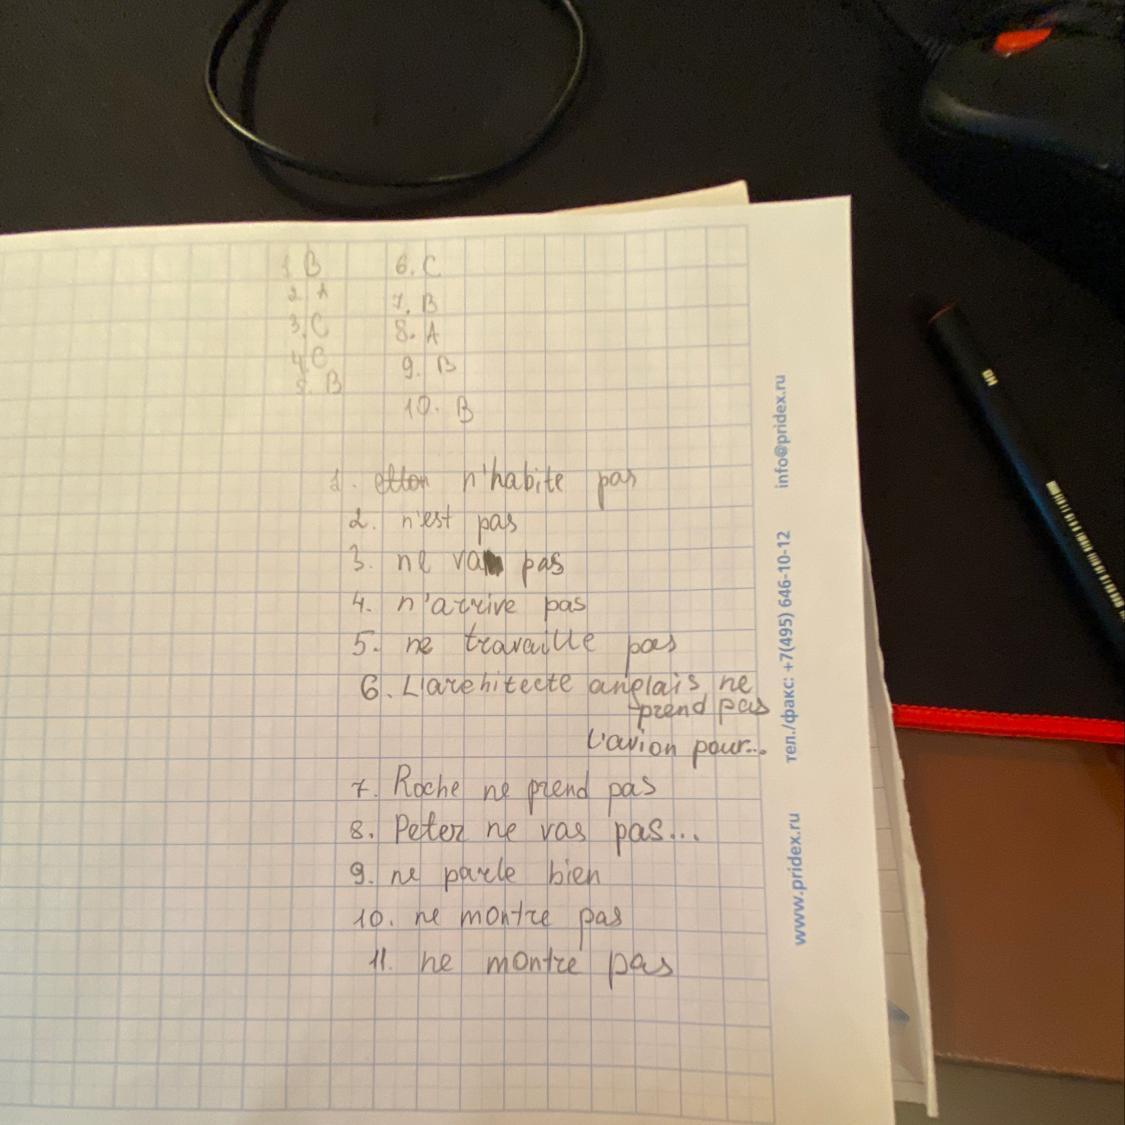 1. B
2. A
3. C
4. C
5. B
6. C
7. B
8. A
9. B
10. B
1. n'habite pas
2. n'est pas
3. ne va pas
4. n'arrive pas
5. ne travaille pas
6. L'architecte anglais ne
prend pas
l'avion pour...
7. Roche ne prend pas
8. Peter ne vas pas...
9. ne parle bien
10. ne montre pas
11. ne montre pas
www.pridex.ru тел./факс: +7(495) 646-10-12 info@pridex.ru
HB